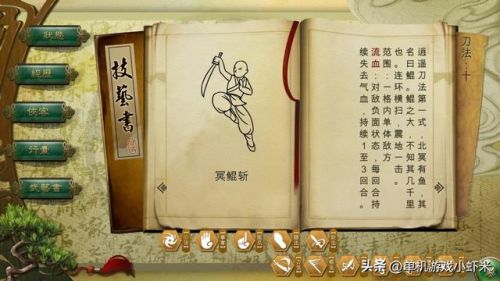 狀態
經歷
俠客
行囊
技藝書
技藝書
冥鲲斩
刀法：十
逍遥刀法第一式，北冥有鱼，其
名曰鲲。鲲之大，不知其几千里
也。连环横扫，震地一击。
范围：一格内单体敌方。
流血：对敌负面状态，每回合持
续失去气血，持续1至3回合。
头条 @单机游戏小虾米